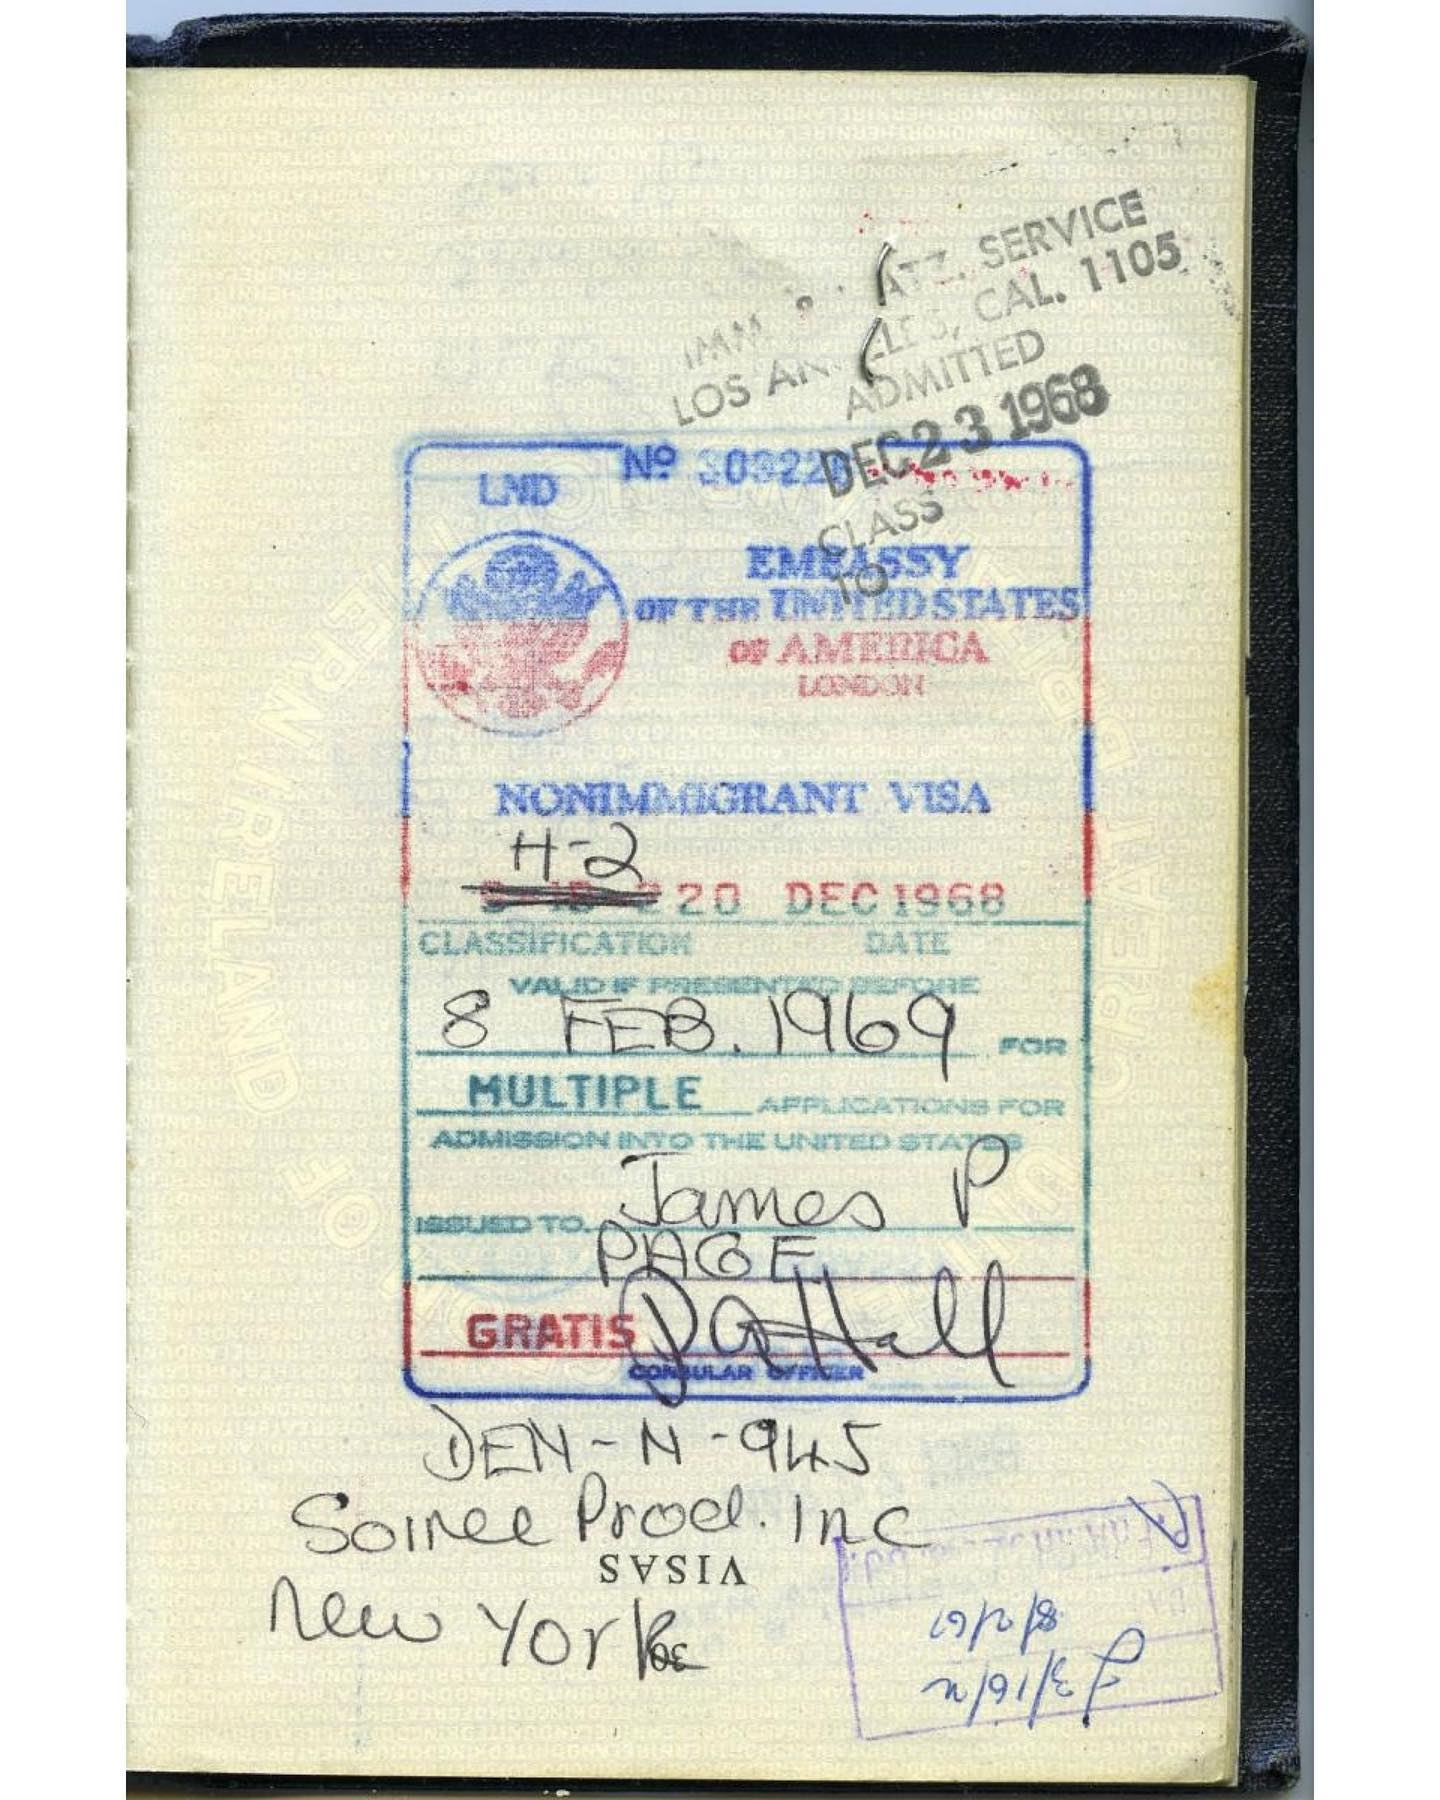 SERVICE
LOS ANGELES, CAL. 1105
ADMITTED
DEC 23 1968
CLASS
TO
Nº
LND
EMBASSY
OF THE UNITED STATES
OF AMERICA
LONDON
NONIMMIGRANT VISA
H-2
20 DEC 1968
CLASSIFICATION DATE
VALID IF PRESENTED BEFORE
8 FEB. 1969 FOR
MULTIPLE APPLICATIONS FOR
ADMISSION INTO THE UNITED STATES
ISSUED TO. James P
PAGE
GRATIS
CONSULAR OFFICER
DEN-N-945
Soiree Prod. Inc
VISAS
New York
30